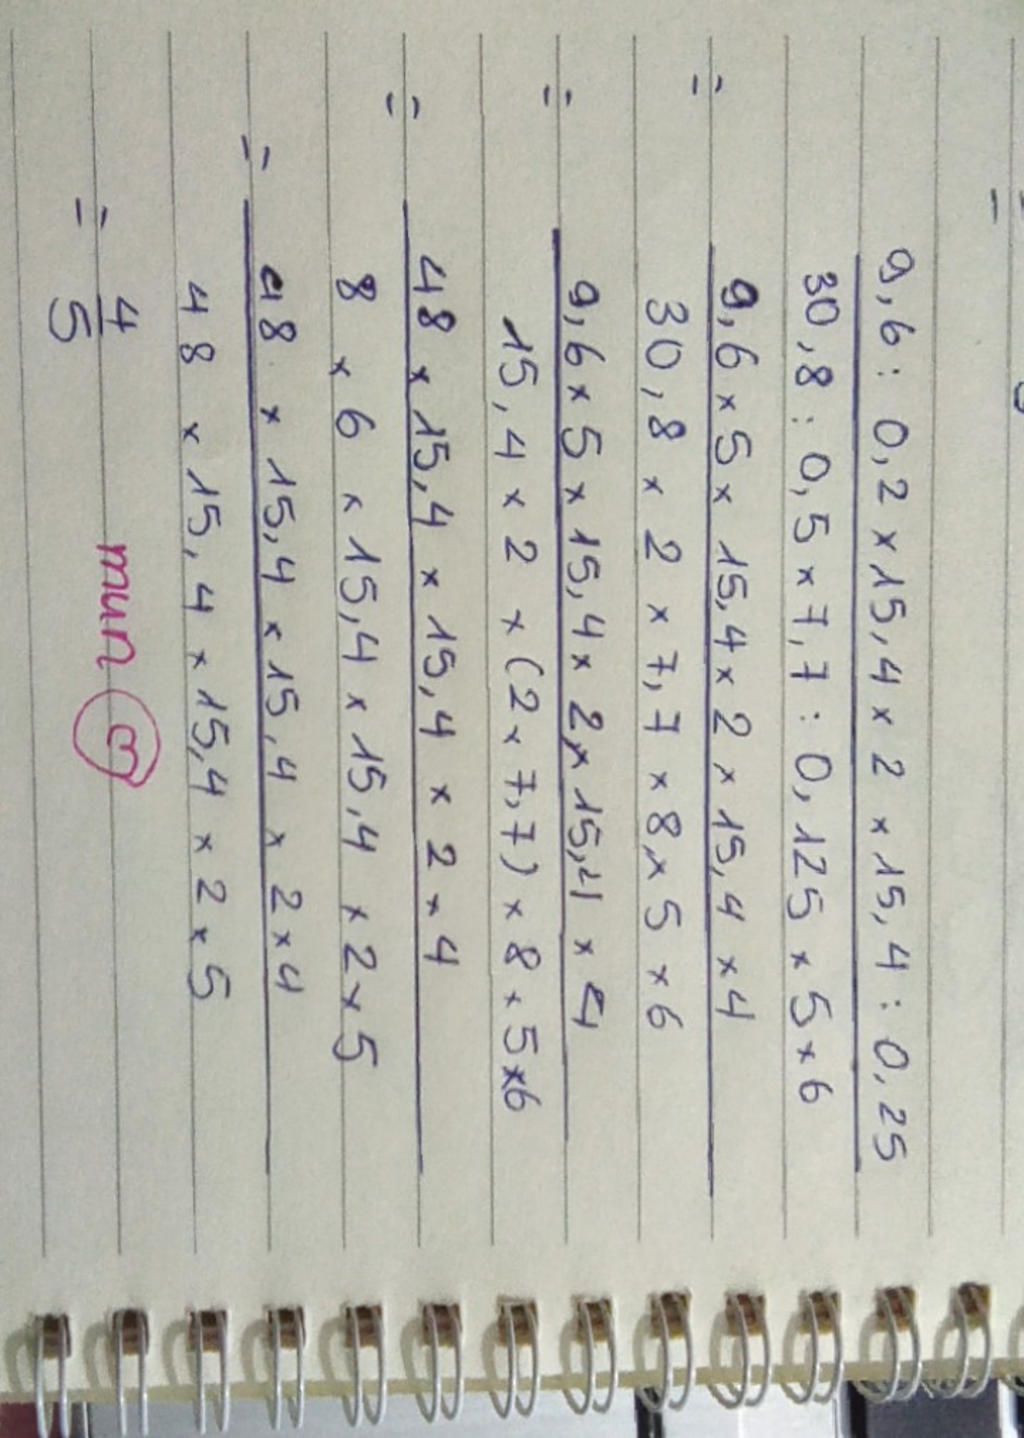 =
9,6 : 0,2 × 15,4 × 2 × 15,4 : 0,25
30,8 : 0,5 × 7,7 : 0,125 × 5 × 6
= 9,6 × 5 × 15,4 × 2 × 15,4 × 4
30,8 × 2 × 7,7 × 8 × 5 × 6
= 9,6 × 5 × 15,4 × 2 × 15,4 × 4
15,4 × 2 × (2 × 7,7) × 8 × 5 × 6
= 48 × 15,4 × 15,4 × 2 × 4
8 × 6 × 15,4 × 15,4 × 2 × 5
= 48 × 15,4 × 15,4 × 2 × 4
48 × 15,4 × 15,4 × 2 × 5
= 4
5
mun